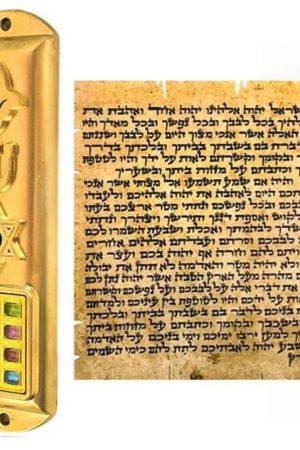 ש
יהוה אלהינו יהוה אחד ואהבת את
בכל לבבך ובכל נפשך ובכל מאדך והיו
האלה אשר אנכי מצוך היום על לבבך ושננתם
ודברת בם בשבתך בביתך ובלכתך בדרך
ובקומך וקשרתם לאות על ידך והיו לטטפת
וכתבתם על מזזות ביתך ובשעריך
והיה אם שמע תשמעו אל מצותי אשר אנכי
היום לאהבה את יהוה אלהיכם ולעבדו
ובכל נפשכם ונתתי מטר ארצכם בעתו
ואספת דגנך ותירשך ויצהרך ונתתי
לבהמתך ואכלת ושבעת השמרו לכם
לבבכם וסרתם ועבדתם אלהים אחרים
להם וחרה אף יהוה בכם ועצר את
ולא יהיה מטר והאדמה לא תתן את יבולה
מהרה מעל הארץ הטבה אשר יהוה נתן לכם
את דברי אלה על לבבכם ועל נפשכם וקשרתם
על ידכם והיו לטוטפת בין עיניכם ולמדתם
בניכם לדבר בם בשבתך בביתך ובלכתך
ובשכבך ובקומך וכתבתם על מזוזות ביתך
למען ירבו ימיכם וימי בניכם על האדמה
יהוה לאבתיכם לתת להם כימי השמים